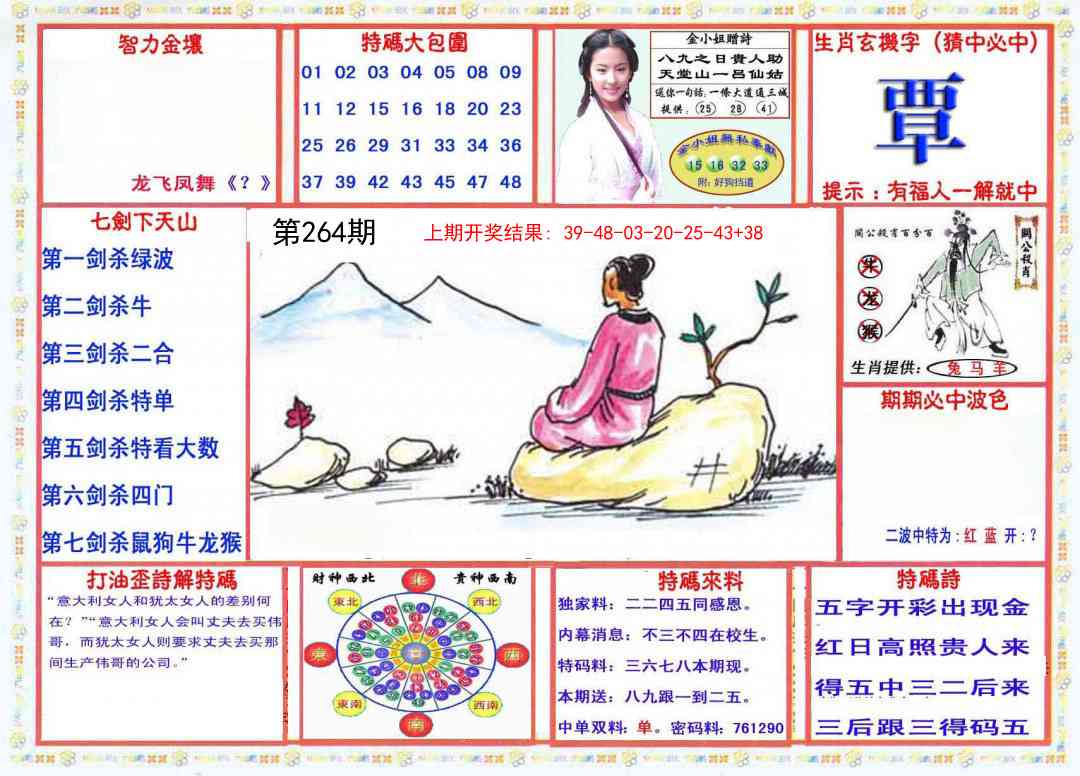 智力金壤
龙飞凤舞《？》
特碼大包圍
01 02 03 04 05 08 09
11 12 15 16 18 20 23
25 26 29 31 33 34 36
37 39 42 43 45 47 48
金小姐赠詩
八九之日貴人助
天堂山一吕仙姑
送你一句話,一條大道通三城
提供: 25 28 41
金小姐無私奉獻
15 16 32 33
附:好狗挡道
生肖玄機字（猜中必中）
覃
提示：有福人一解就中
七劍下天山
第一剑杀绿波
第二剑杀牛
第三剑杀二合
第四剑杀特单
第五剑杀特看大数
第六剑杀四门
第七剑杀鼠狗牛龙猴
第264期
上期开奖结果: 39-48-03-20-25-43+38
井
關公殺肖百分百
關公殺肖
牛
龙
猴
生肖提供: 兔 马 羊
期期必中波色
二波中特为:红 蓝 开:？
打油歪詩解特碼
“意大利女人和犹太女人的差别何
在？”“意大利女人会叫丈夫去买伟
哥，而犹太女人则要求丈夫去买那
间生产伟哥的公司。”
財神西北
貴神西南
北
東北
西北
東
西
東南
西南
南
特碼來料
独家料：二二四五同感恩。
内幕消息：不三不四在校生。
特码料：三六七八本期现。
本期送：八九跟一到二五。
中单双料：单。密码料：761290
特碼詩
五字开彩出现金
红日高照贵人来
得五中三二后来
三后跟三得码五